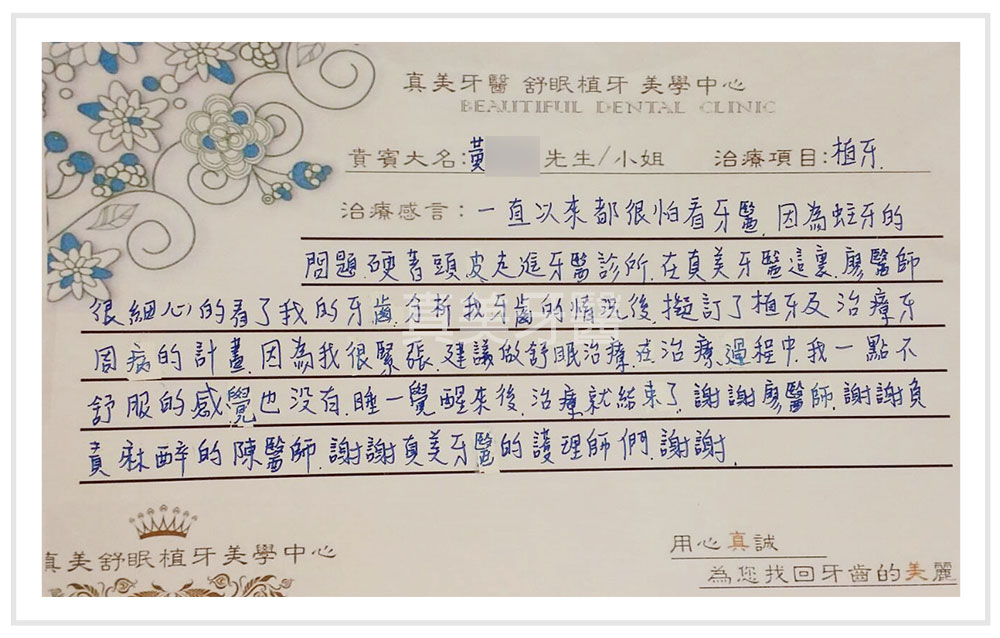 真美牙醫 舒眠植牙 美學中心
BEAUTIFUL DENTAL CLINIC
貴賓大名:黃 先生/小姐 治療項目:植牙.
治療感言:一直以來都很怕看牙醫,因為蛀牙的
問題硬著頭皮走進牙醫診所.在真美牙醫這裏.廖醫師
很細心的看了我的牙齒.分析我牙齒的情況後.擬訂了植牙及治療牙
周病的計畫.因為我很緊張.建議做舒眠治療.在治療過程中.我一點不
舒服的感覺也没有.睡一覺醒來後.治療就結束了.謝謝廖醫師.謝謝負
責麻醉的陳醫師.謝謝真美牙醫的護理師們.謝謝.
真美牙醫
真美舒眠植牙美學中心
用心真誠
為您找回牙齒的美麗